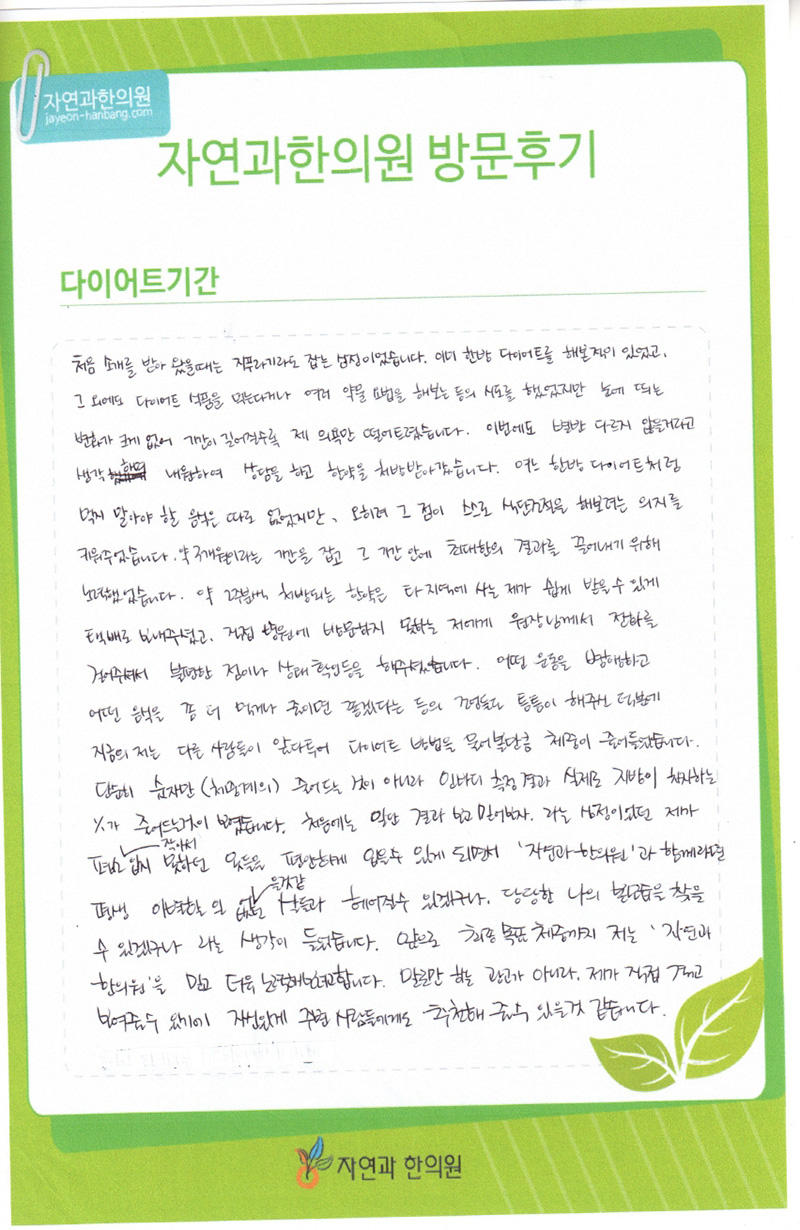 자연과한의원
jayeon-hanbang.com
자연과한의원 방문후기
다이어트기간
처음 소개를 받아 왔을때는 지푸라기라도 잡는 심정이었습니다. 이미 한방 다이어트를 해본적이 있었고,
그 외에도 다이어트 식품을 먹는다거나 여러 약물 요법을 해보는 등의 시도를 했었지만 눈에 띄는
변화가 크게 없어 기간이 길어질수록 제 의욕만 떨어트렸습니다. 이번에도 별반 다르지 않을거라고
생각하며 내원하여 상담을 하고 한약을 처방받아갔습니다. 여느 한방 다이어트처럼
먹지 말아야 할 음식은 따로 없었지만, 오히려 그 점이 스스로 식단조절을 해보려는 의지를
키워주었습니다. 약 3개월이라는 기간을 잡고 그 기간 안에 최대한의 결과를 끌어내기 위해
노력했었습니다. 약 2주분씩 처방되는 한약은 타지역에 사는 제가 쉽게 받을 수 있게
택배로 보내주셨고, 직접 병원에 방문하지 못하는 저에게 원장님께서 전화를
걸어주셔서 불편한 점이나 상태 확인등을 해주셨습니다. 어떤 운동을 병행하고
어떤 음식을 좀 더 먹거나 줄이면 좋겠다는 등의 조언들도 통틀어 해주신 덕분에
지금의 저는 다른 사람들이 앞다투어 다이어트 방법을 물어볼만큼 체중이 줄어들었습니다.
단순히 숫자만 (체중계의) 줄어드는 것이 아니라 인바디 측정 결과 실제로 지방이 차지하는
%가 줄어드는것이 보였습니다. 처음에는 일단 결과 보고 믿어보자. 라는 심정이었던 제가
작아서
입지 못하던 옷들을 편안하게 입을수 있게 되면서 '자연과한의원'과 함께라면
을것같
평생 이별할 일 없던 살들과 헤어질수 있겠구나, 당당한 나의 모습을 찾을
수 있겠구나 라는 생각이 들었습니다. 앞으로 최종 목표 체중까지 저는 '자연과
한의원'을 믿고 더욱 노력해보려고합니다. 말로만 하는 광고가 아니라, 제가 직접 겪고
보여줄수 있기에 자신있게 주변 사람들에게도 추천해 줄수 있을것 같습니다.
자연과 한의원